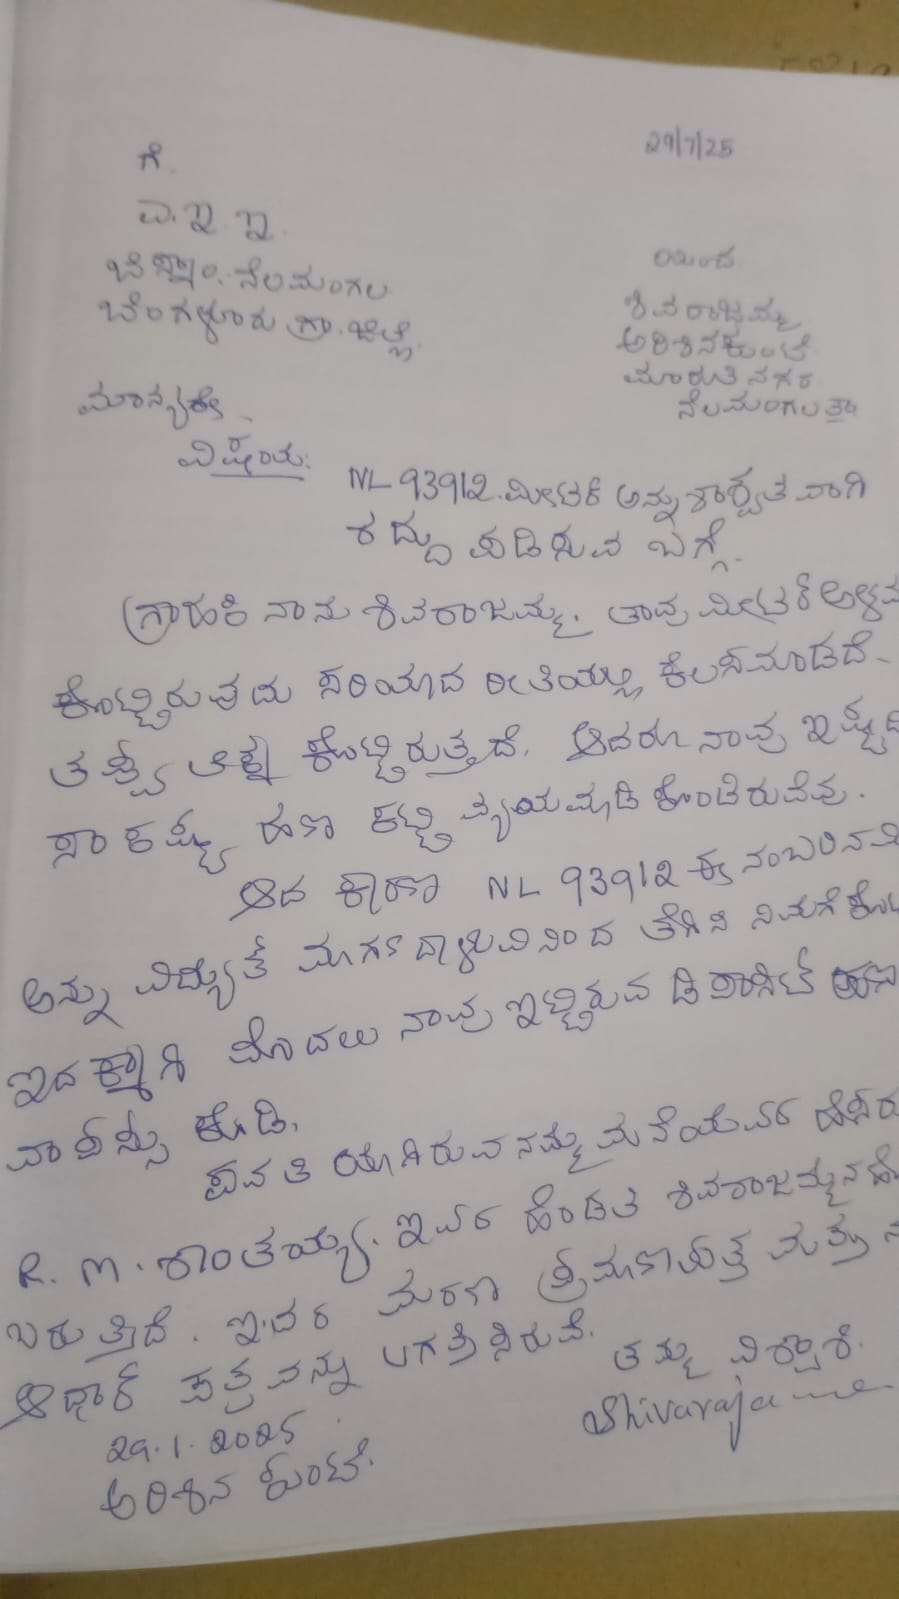 29/7/25
ಗೆ.
ಎ.ಇ.ಇ.
ಬೆಸ್ಕಾಂ. ನೆಲಮಂಗಲ
ಬೆಂಗಳೂರು ಗ್ರಾ. ಜಿಲ್ಲೆ.
ಯಿಂದ
ಶಿವರಾಜಮ್ಮ
ಅರಿಶಿನಕುಂಟೆ
ಮಾರುತಿ ನಗರ
ನೆಲಮಂಗಲ ತಾ
ಮಾನ್ಯರೇ
ವಿಷಯ:
NL 93912. ಮೀಟರ್ ಅನ್ನು ಶಾಶ್ವತವಾಗಿ
ರದ್ದು ಪಡಿಸುವ ಬಗ್ಗೆ.
ಗ್ರಾಹಕಿ ನಾನು ಶಿವರಾಜಮ್ಮ. ತಾವು ಮೀಟರ್
ಕೊಟ್ಟಿರುವುದು ಸರಿಯಾದ ರೀತಿಯಲ್ಲಿ ಕೆಲಸಮಾಡದೆ
ಕೊಟ್ಟಿರುತ್ತದೆ. ಆದರೂ ನಾವು
ಸಾಕಷ್ಟು ಹಣ ಕಟ್ಟಿ ವ್ಯಯಮಾಡಿಕೊಂಡಿರುವೆವು.
ಆದ ಕಾರಣ NL 93912 ಈ ನಂಬರಿನ
ಅನ್ನು ವಿದ್ಯುತ್ ತೆಗೆಸಿ ನಿಮಗೆ
ಇದಕ್ಕಾಗಿ ಮೊದಲು ನಾವು ಇಟ್ಟಿರುವ ಡಿಪಾಸಿಟ್ ಹಣ
ವಾಪಸ್ಸು ಕೊಡಿ.
ಪಾವತಿಯಾಗಿರುವ ನಮ್ಮ ಮನೆಯವರ ಹೆಸರು
R. M. ಶಾಂತಯ್ಯ. ಇವರ ಹೆಂಡತಿ ಶಿವರಾಜಮ್ಮನ
ಬರುತ್ತಿದೆ. ಇವರ ಮರಣ ಪ್ರಮಾಣಪತ್ರ ಮತ್ತು
ಆಧಾರ್ ಪತ್ರವನ್ನು ಲಗತ್ತಿಸಿರುವೆ.
ತಮ್ಮ ವಿಶ್ವಾಸಿ.
29.1.2025
ಅರಿಶಿನ ಕುಂಟೆ.